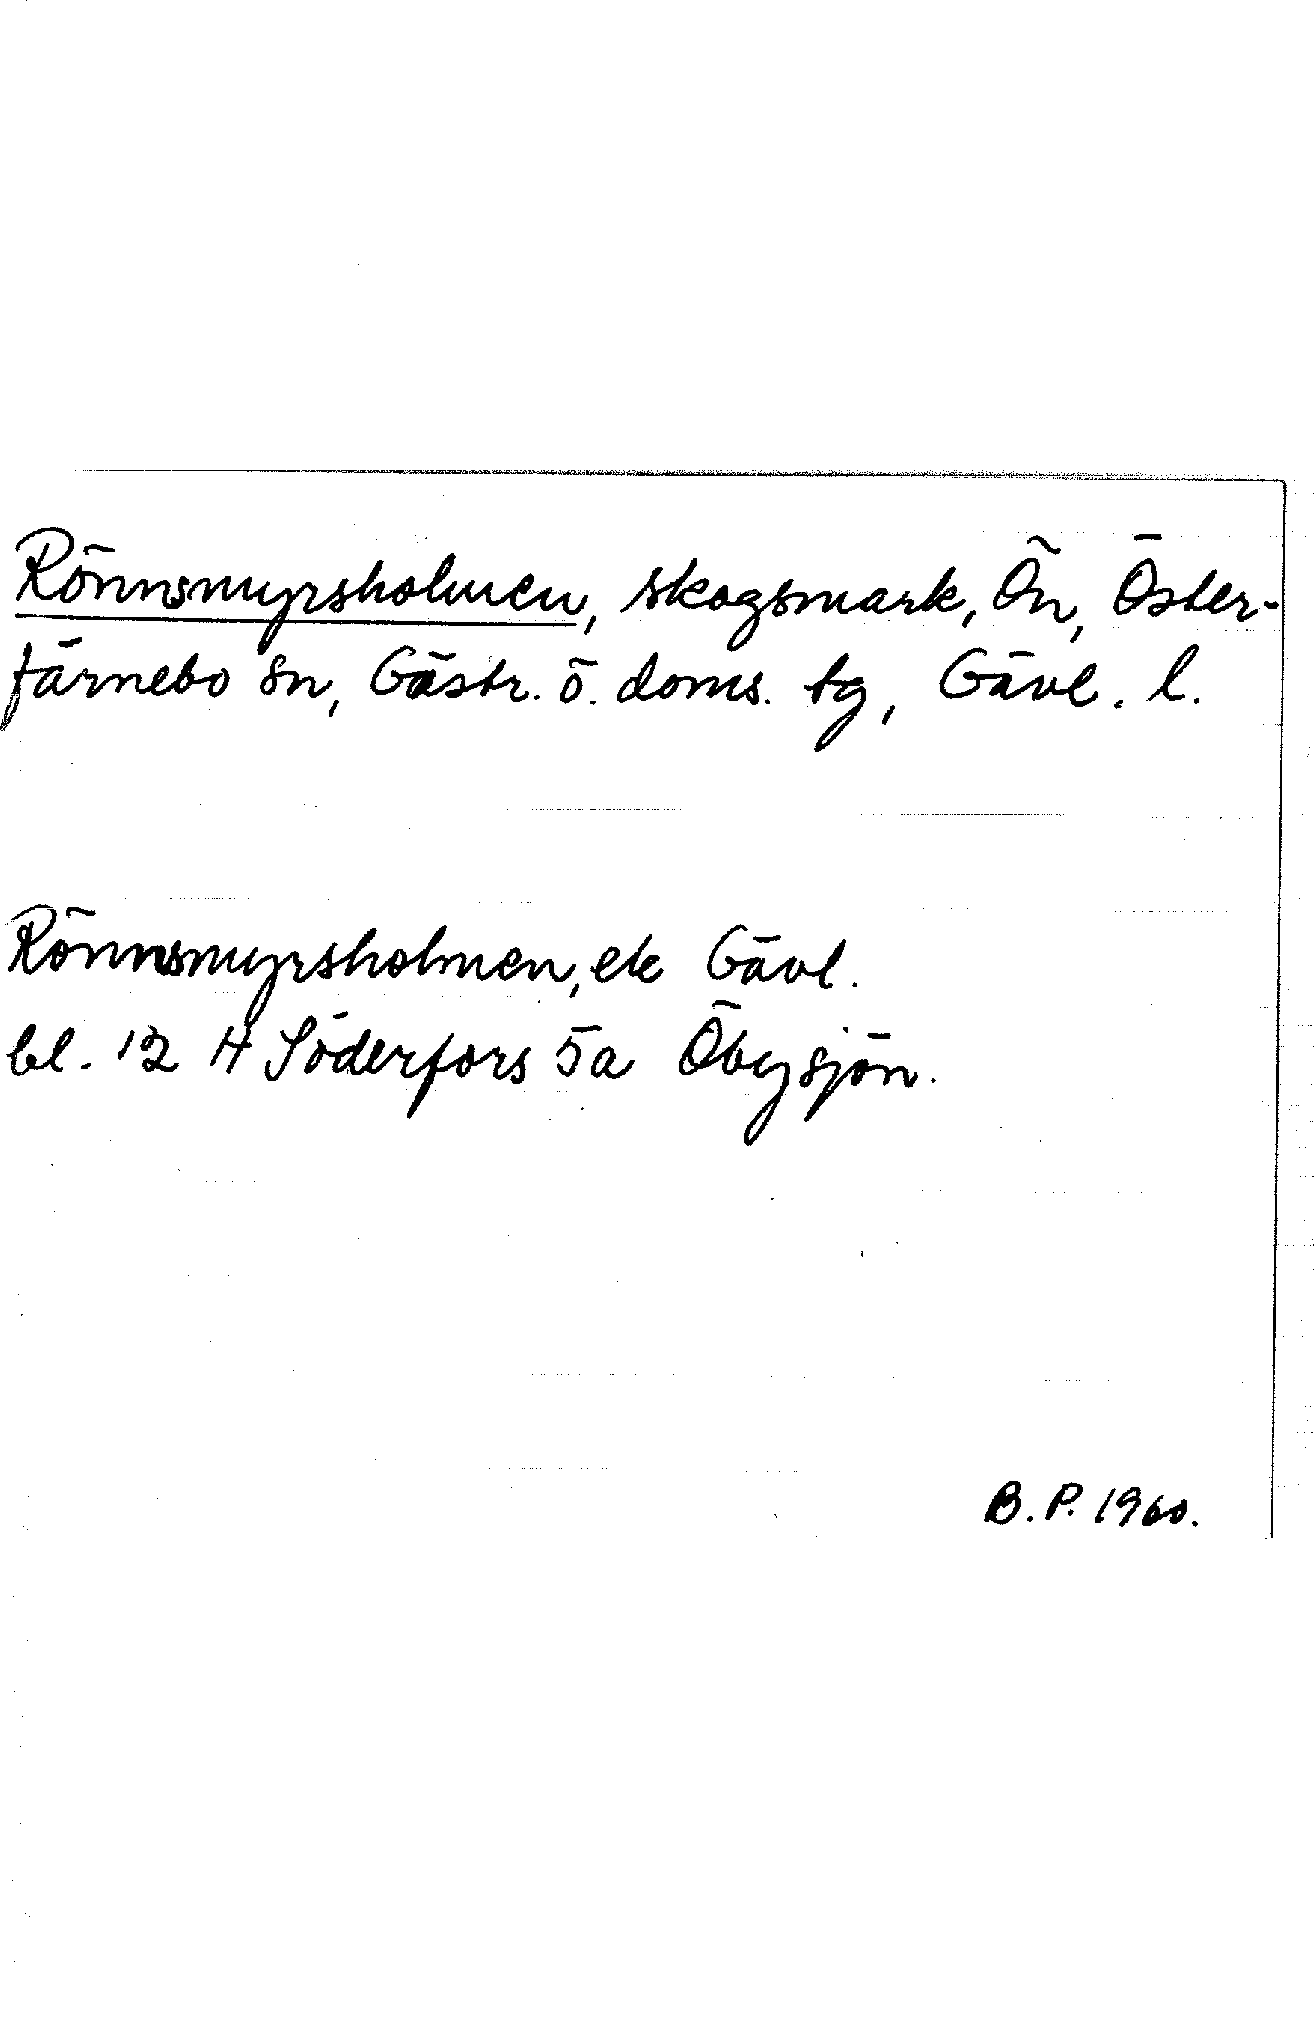 Rönnsmyrsholmen, skogsmark, Ön, Öster-
färnebo sn, Gästr. ö. doms. tg, Gävl. l.
Rönnsmyrsholmen, ek Gävl.
bl. 12 H Söderfors 5a Öbysjön.
B. P. 1960.